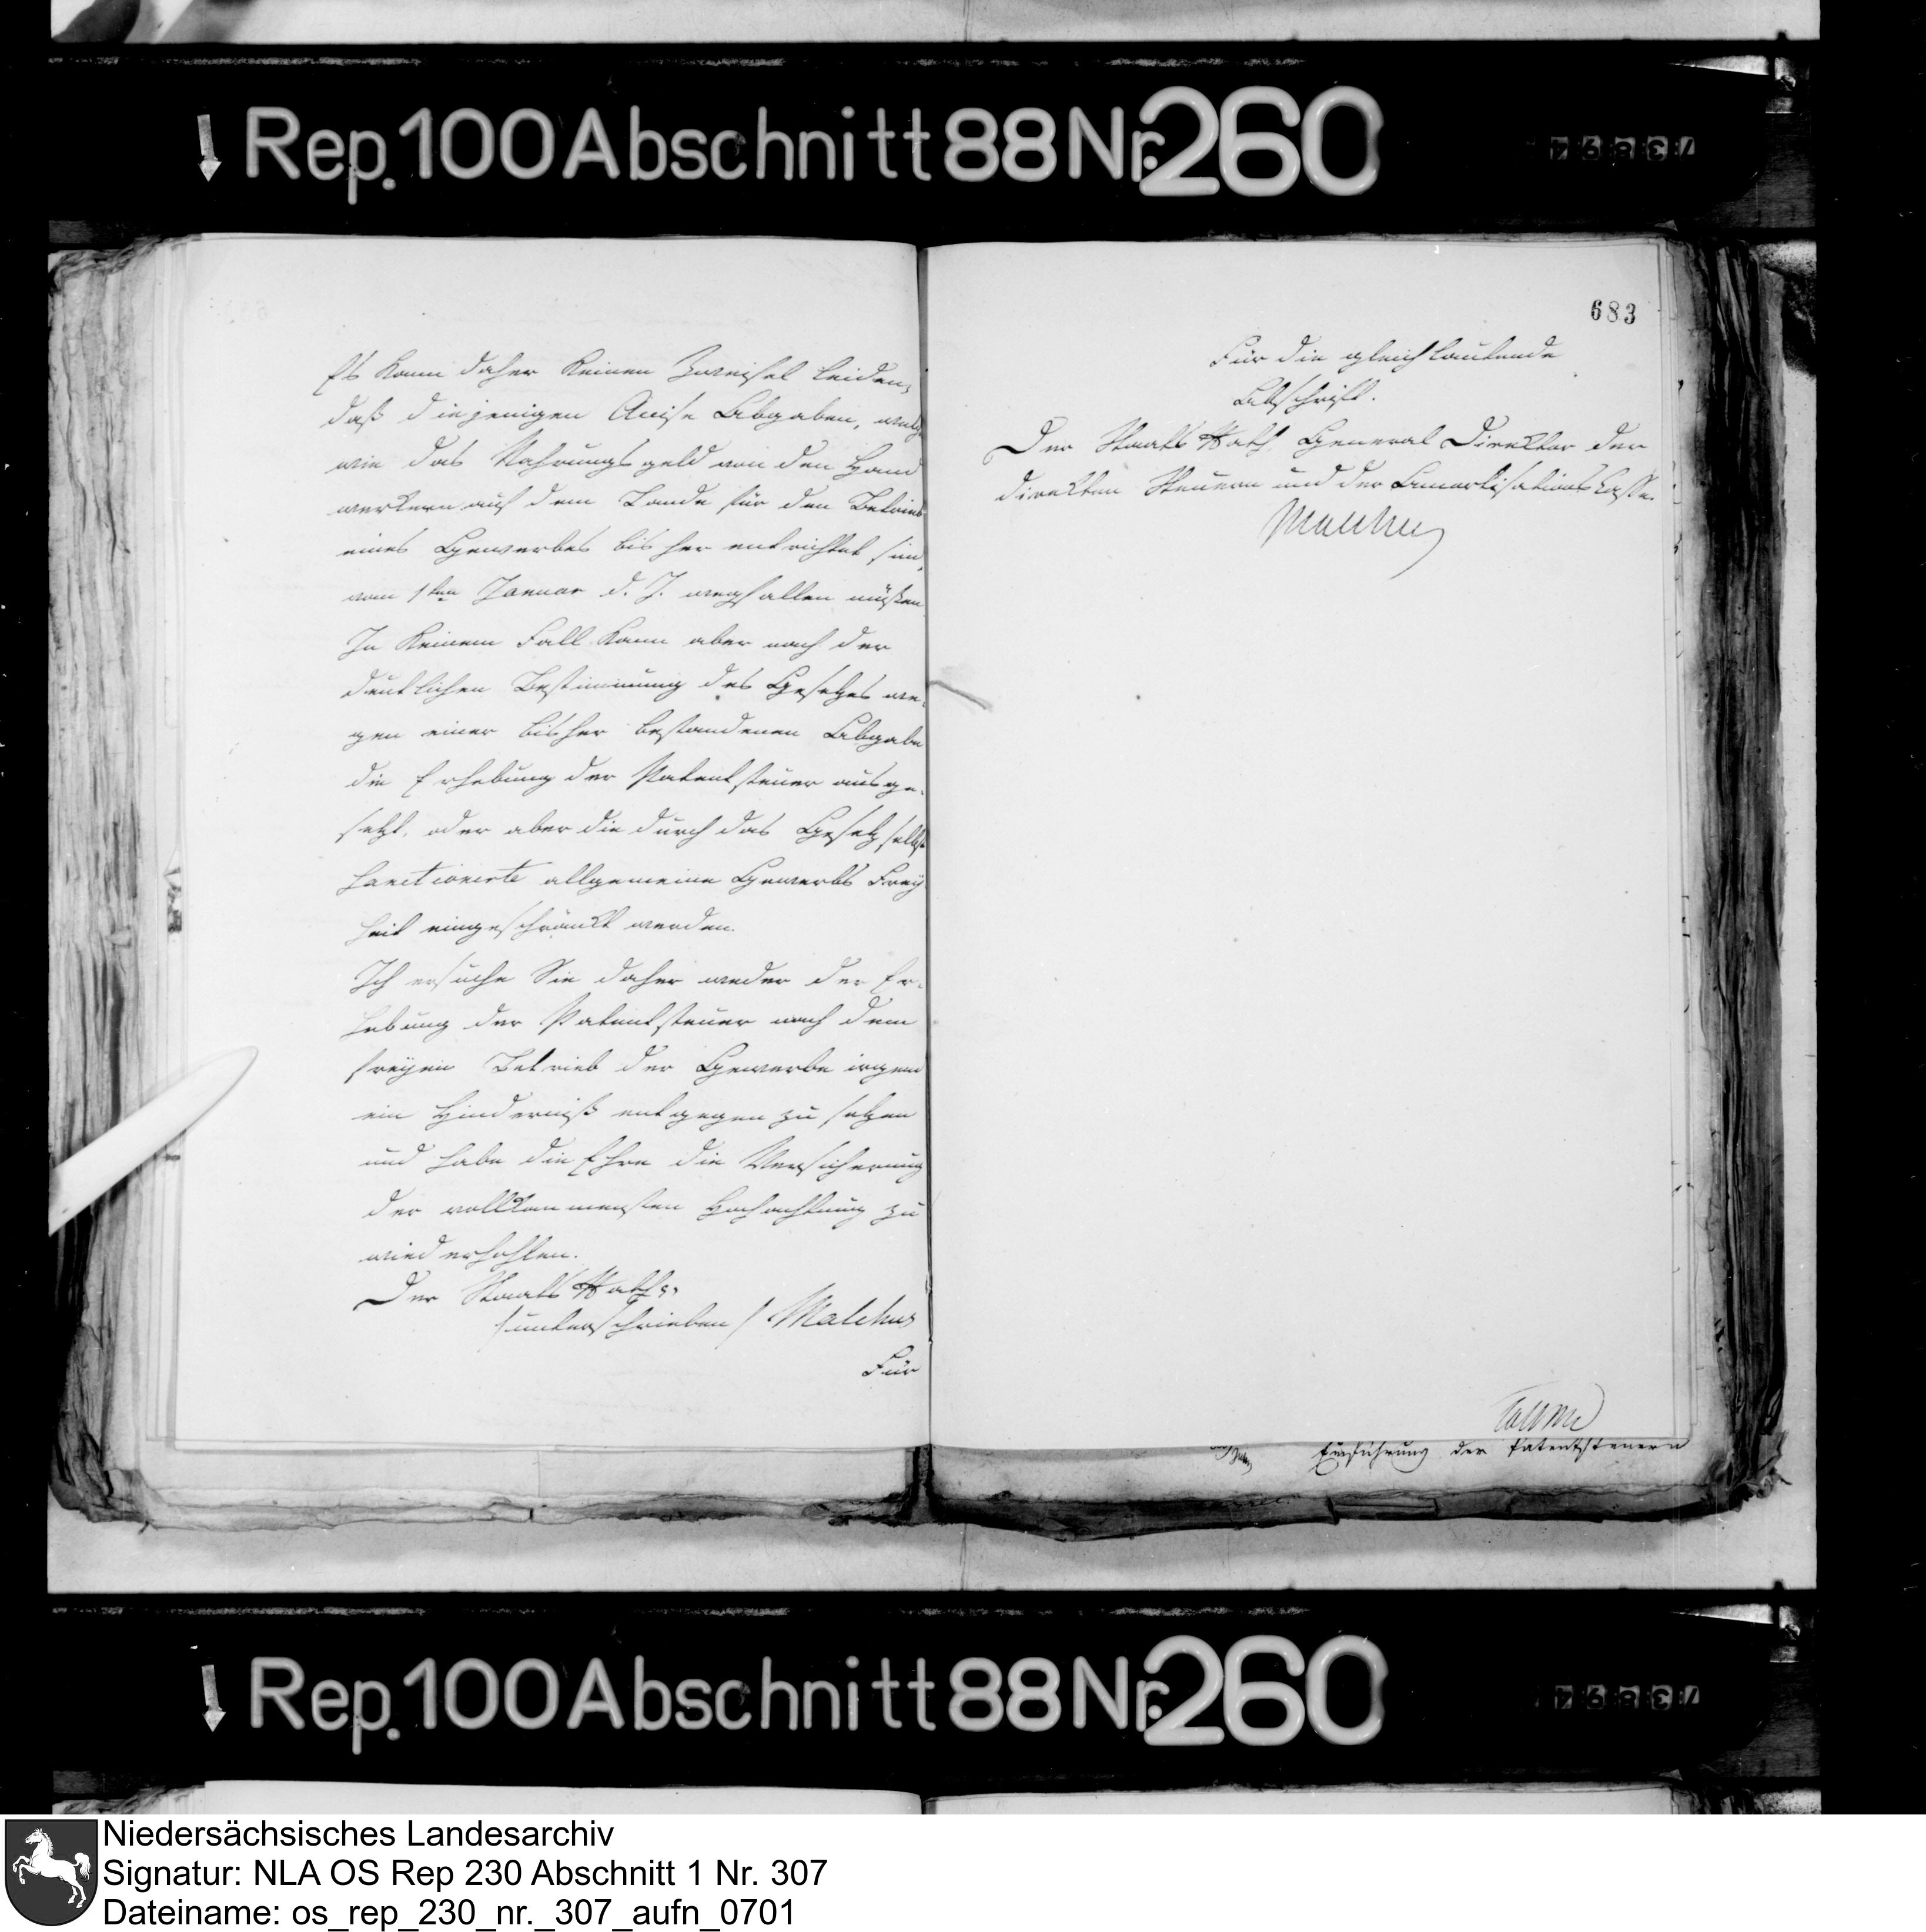 Rep. 100 Abschnitt 88 Nr. 260
Es kann daher keinen Zweifel leiden,
daß diejenigen Accise Abgaben, welche
wie das Nahrungsgeld von den Hand
werkern auf dem Lande für den Betrieb
eines Gewerbes bisher entrichtet sind,
vom 1ten Januar d. J. wegfallen müßen
In keinem Fall kann aber nach der
deutlichen Bestimmung des Gesetzes we-
gen einer bisher bestandenen Abgabe
die Erhebung der Patentsteuer ausge-
setzt, oder aber die durch das Gesetz selbst
sanctionirte allgemeine Gewerbs Frey
heit eingeschränkt werden.
Ich ersuche Sie daher weder der Er-
hebung der Patentsteuer noch dem
freyen Betrieb der Gewerbe irgend
ein Hinderniß entgegen zu setzen
und habe die Ehre die Versicherung
der vollkommensten Hochachtung zu
wiederhohlen.
Der Staats Rath
/unterschrieben/ Malchus
Für
683
Für die gleichlautende
Abschrift.
Der Staats Rath General Direktor der
direkten Steuern und der Amortisations Casse.
Malchus
Einführung der Patentsteuern
Rep. 100 Abschnitt 88 Nr. 260
Niedersächsisches Landesarchiv
Signatur: NLA OS Rep 230 Abschnitt 1 Nr. 307
Dateiname: os_rep_230_nr._307_aufn_0701